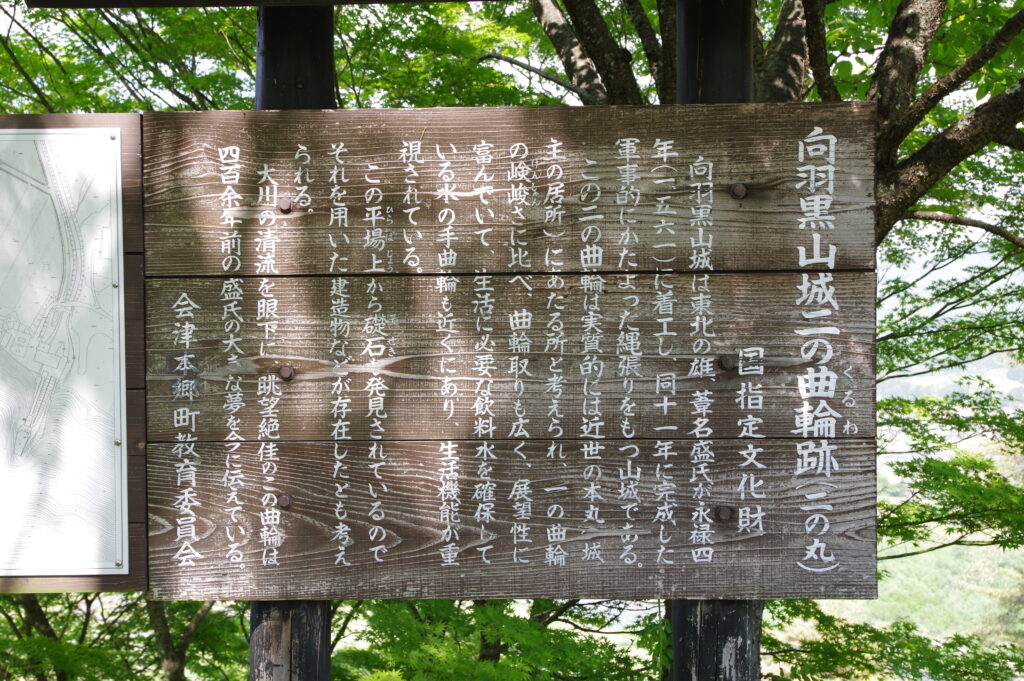 向羽黒山城二の曲輪跡(二の丸)
くるわ
国指定文化財
向羽黒山城は東北の雄、葦名盛氏が永禄四
年(一五六一)に着工し、同十一年に完成した
軍事的にかたよった縄張りをもつ山城である。
この二の曲輪は実質的には近世の本丸(城
主の居所)にあたる所と考えられ、一の曲輪
の険峻さに比べ、曲輪取りも広く、展望性に
けんしゅん
富んでいて、生活に必要な飲料水を確保して
いる水の手曲輪も近くにあり、生活機能が重
視されている。
この平場上から礎石が発見されているので
ひらばじょう
それを用いた建造物などが存在したとも考え
られる。
大川の清流を眼下に、眺望絶佳のこの曲輪は
四百余年前の盛氏の大きな夢を今に伝えている。
会津本郷町教育委員会